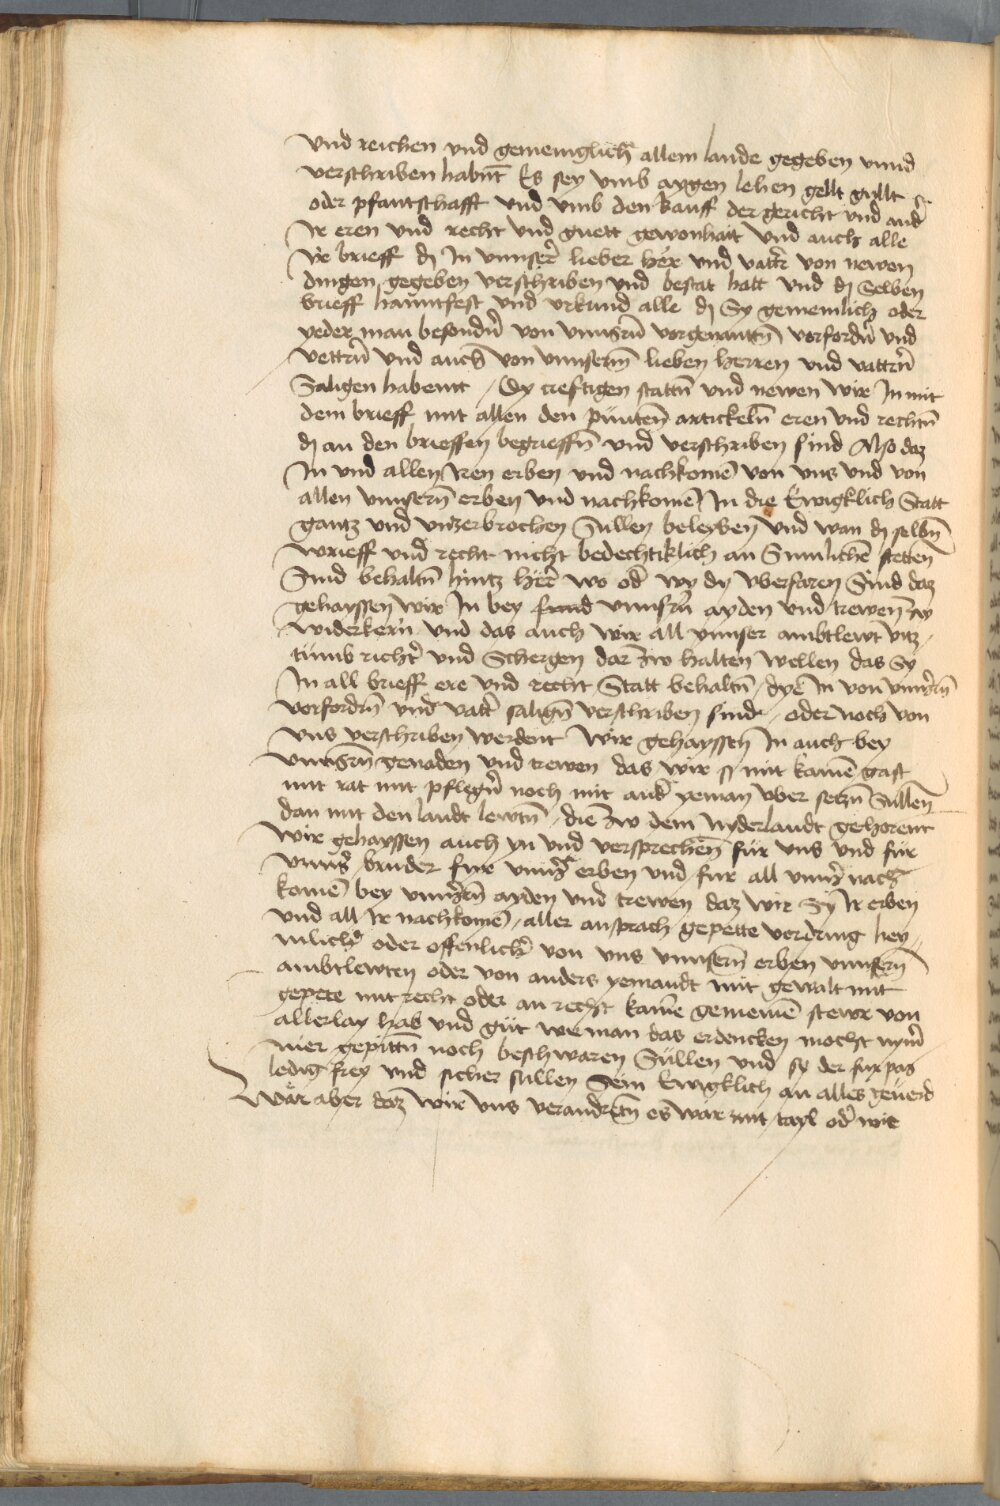 Vnd reichen vnd gemeinglich allem lande gegeben vnnd
verschriben habnt Es sey vmb aygen lehen gellt gullt
oder pfantschafft vnd vmb den kauff der gericht vnd and
Ir eren vnd recht vnd guett gewonhait vnd auch alle
Ir brieff dj In vnnser lieber her vnd vattr von newen
dingen gegeben verschriben vnd bestat hatt vnd dj Selben
brieff hanntfest vnd vrkund alle dj Sy gemeinlich oder
yeder man besondn von vnnsrn vorgenantn vorfordn vnd
vettrn vnd auch von vnnserm lieben herren vnd vattrn
Saligen habennt / Dy creftigen stattn vnd newen wir In mit
dem brieff mit allen den punten artickeln eren vnd rechtn
dj an den brieffen begrieffn vnd verschriben sind Also daz
In vnd allen Iren erben vnd nachkome von vns vnd von
allen vnnsern erben vnd nachkome In die Ewigklich Statt
gantz vnd vnzerbrochen Sullen beleyben vnd wan dj selbn
brieff vnd recht nicht bedechtiklich an Sumlichen stetten
Sind behaltn hintz her wo od wy dy vberfaren Sind daz
gehayssen wir In bey vnnsrn ayden vnd trewen zw
widerkern vnd das auch wir all vnnser ambtlewt vitz
tumb richt vnd Schergen dar zw halten wellen das Sy
In all brieff ere vnd recht Statt behaltn / dye In von vnnsrn
vorfordrn vnd vatt salign verschriben sind / oder noch von
vns verschriben werdent Wir gehayssen In auch bey
vnnsrn genaden vnd trewen das wir sy mit kaine gast
mit rat mit pflegn noch mit and yeman vber setzn Sullen
dan mit den landt lewtn / die zw dem Nyderlandt gehorent
Wir gehayssen auch yn vnd versprechen fur vns vnd fur
vnns bruder fur vnns erben vnd fur all vnns nach
kome bey vnnsrn ayden vnd trewen daz wir Sy Ir erben
vnd all Ir nachkome / aller ansprach gepette vordrung hey
mlich oder offenlich von vns vnnsern erben vnnsern
ambtlewten oder von anders yemandt mit gewalt mit
gepete mit recht oder an recht kaine gemeine stewr von
allerlay hab vnd gut wie man das erdencken mocht nym
mer gepittn noch beschwaren Sullen vnd sy der furpas
ledig frey vnd sicher sullen Sein Ewigklich an alles geuerd
Wär aber daz wir vns verandrtn es war mit tayl od mit